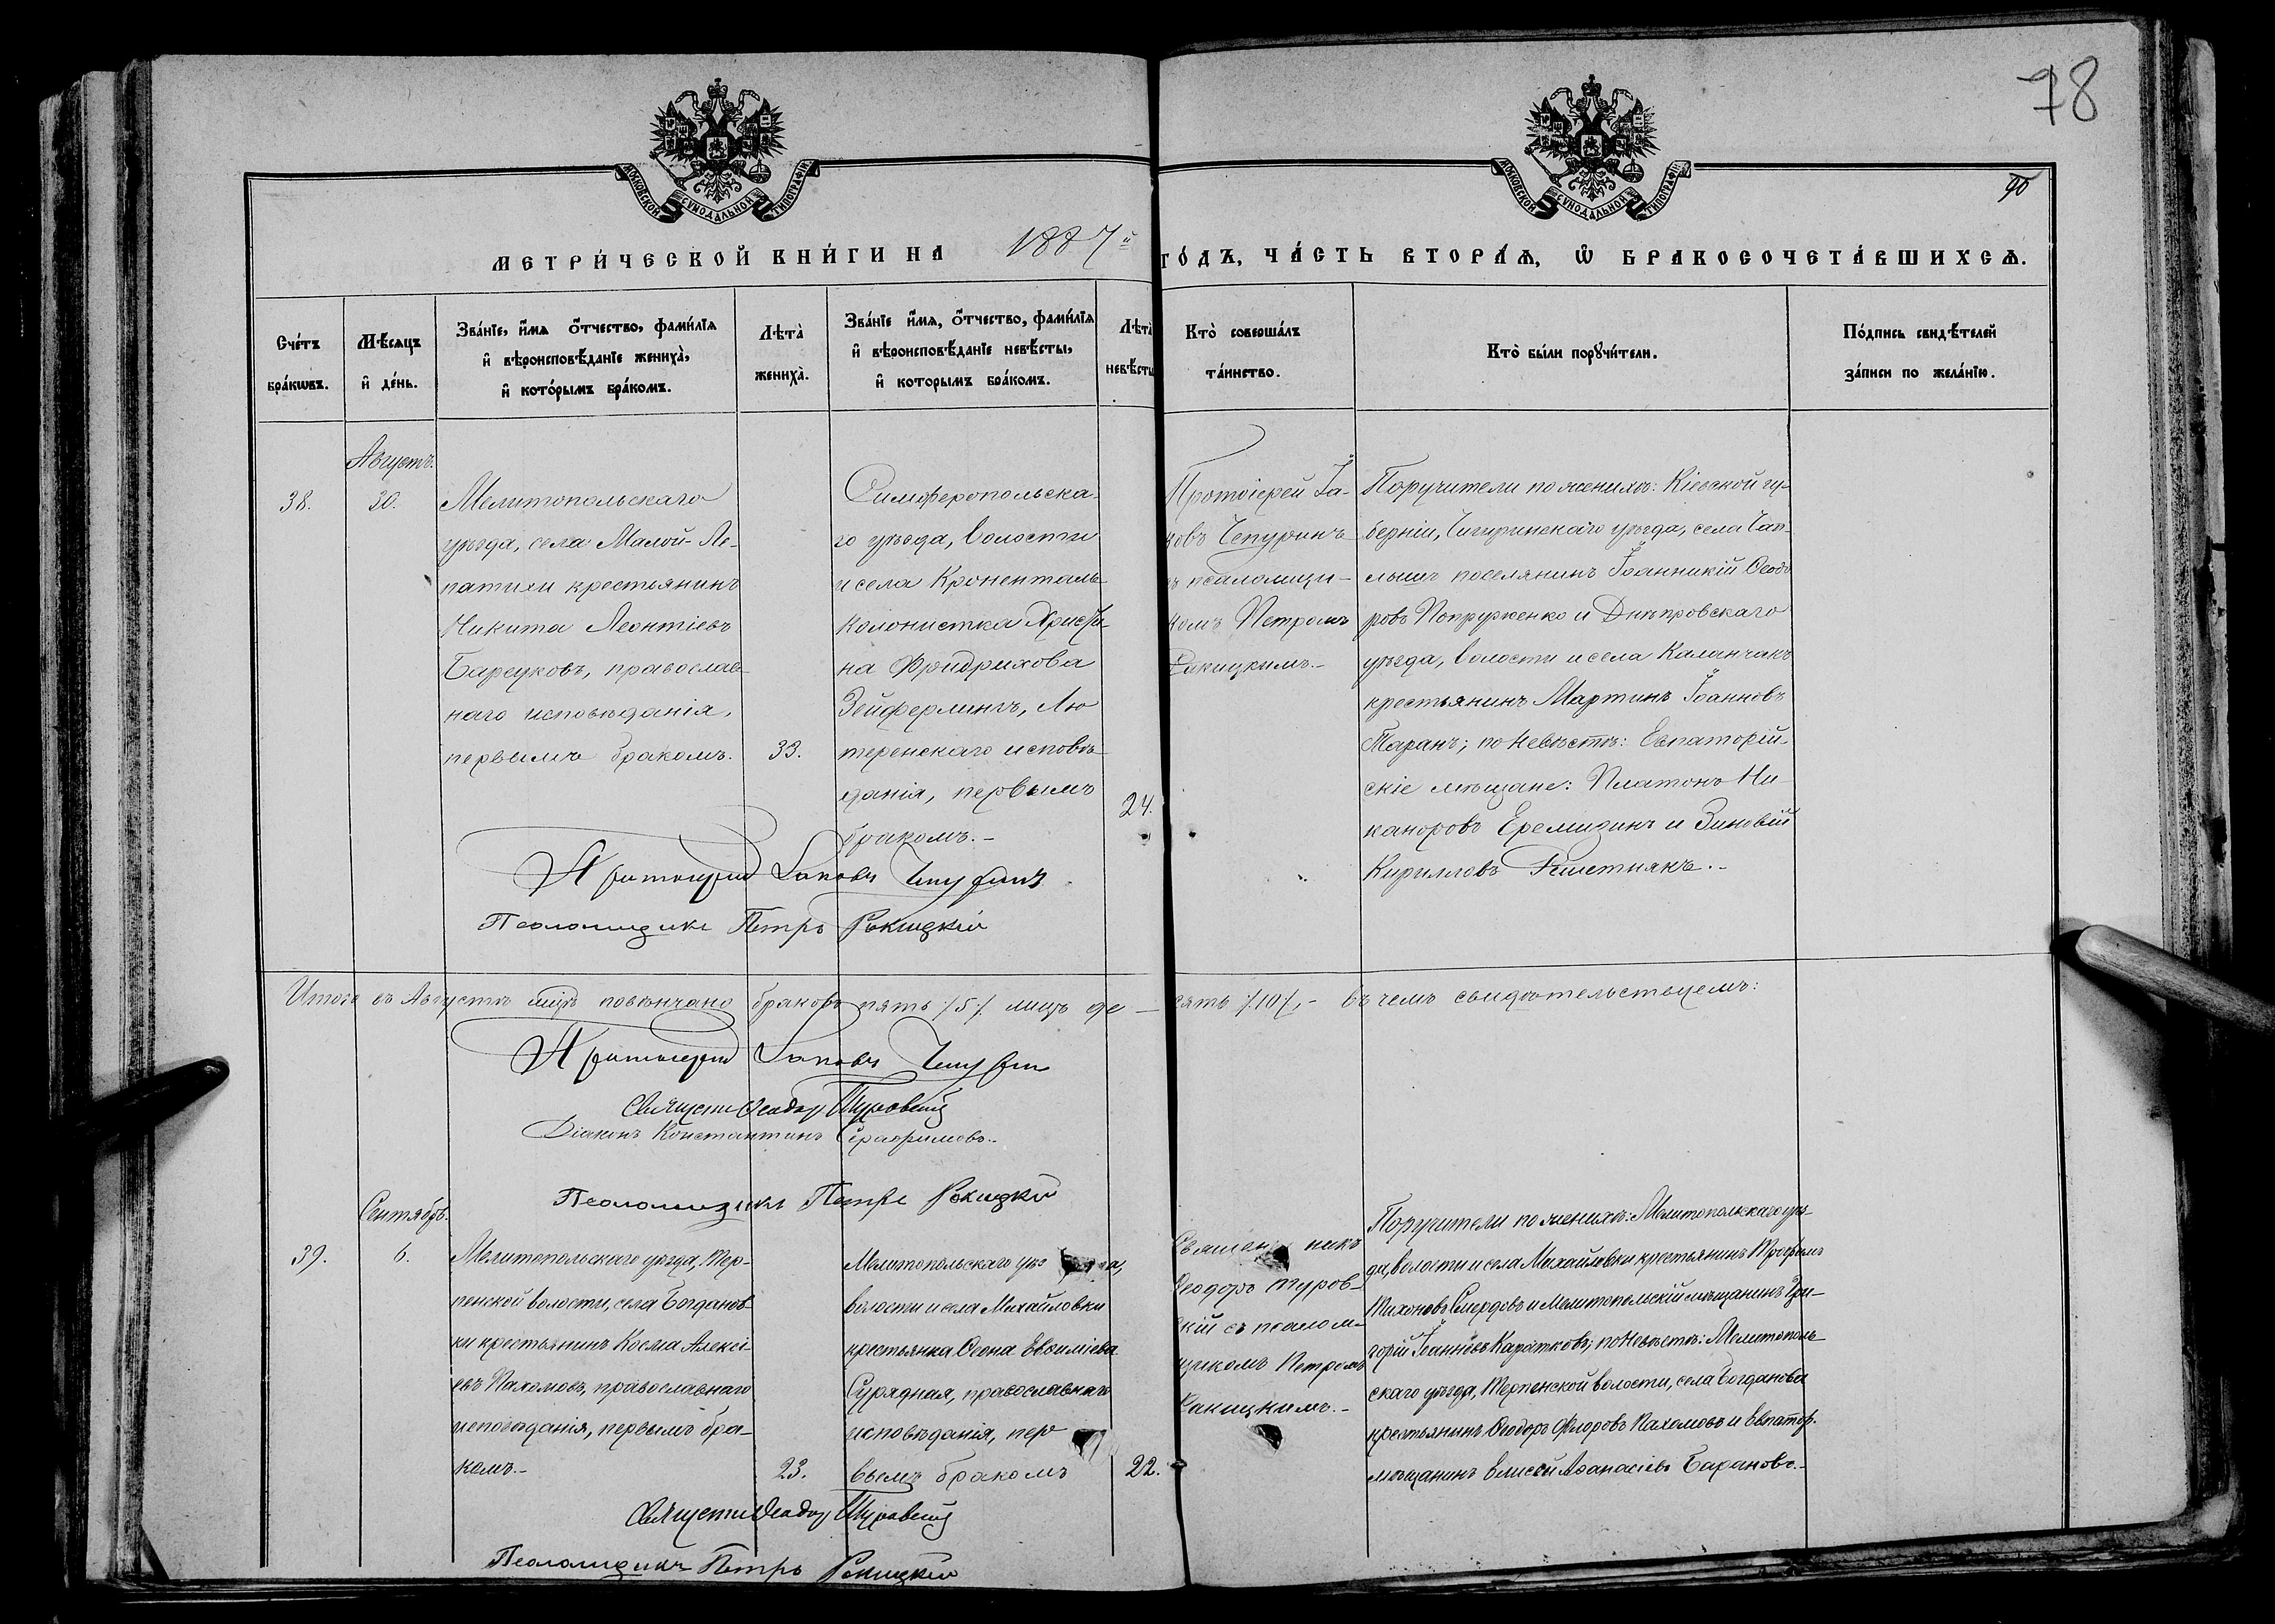 78
МОСКОВСКОЙ СѴНОДАЛЬНОЙ ТИПОГРАФІИ
МОСКОВСКОЙ СѴНОДАЛЬНОЙ ТИПОГРАФІИ
90
МЕТРИ́ЧЕСКОЙ КНИ́ГИ НА 1887й ГО́ДЪ, ЧА́СТЬ ВТОРА́Ѧ, Ѡ҆ БРАКОСОЧЕТА́ВШИХСѦ.
Сче́тъ
бра́кωвъ.
Мѣ́сяцъ
и҆ де́нь.
Зва́нїе, и҆́мя ѻ҆́тчество, фами́лїя
и҆ вѣроисповѣ́данїе жениха̀,
и҆ кото́рымъ бра́комъ.
Лѣта̀
жениха̀.
Зва́нїе и҆́мя, ѻ҆́тчество, фами́лїя
и҆ вѣроисповѣ́данїе невѣ́сты,
и҆ которымъ бра́комъ.
Лѣта̀
невѣ́сты
Кто̀ соверша́лъ
та́инство.
Кто̀ бы́ли порꙋчи́тели.
По́дпись свидѣ́телей
за́писи по жела́нїю.
Августъ.
38.
30.
Мелитопольскаго
уѣзда, села Малой-Ле-
патихи крестьянинъ
Никита Леонтіевъ
Барсуковъ, православ-
наго исповѣданія,
первымъ бракомъ.
33.
Симферопольска-
го уѣзда, волости
и села Кроненталь
колонистка Христи-
на Фридрихова
Зейферлингъ, Лю
теренскаго исповѣ-
данія, первымъ
бракомъ.-
24.
Протоіерей Іа-
ковъ Чепуринъ
съ псаломщи-
комъ Петромъ
Ракицкимъ.-
Поручители по женихѣ: Кіевской гу-
берніи, Чигиринскаго уѣзда, села
поселянинъ Іоанникій Ѳеодо
ровъ Попруженко и Днѣпровскаго
уѣзда, волости и села Каланчакъ
крестьянинъ Мартинъ Іоанновъ
Таранъ; по невѣстѣ: Евпаторій-
скіе мѣщане: Платонъ Ни-
каноровъ Еремизинъ и Зиновій
Кирилловъ Решетнякъ.-
Протоіерей Іаковъ Чепуринъ
Псаломщикъ Петръ Ракицкій
Итого въ Августѣ мцѣ повѣнчано браковъ пять /5/. лицъ де-сять /10/,- въ чемъ свидѣтельствуемъ:
Протоіерей Іаковъ Чепурин
Священн Ѳеодоръ Туровскій
Діаконъ Константинъ Серафимовъ.-
Псаломщикъ Петръ Ракицкій
Сентябрь.
39.
6.
Мелитопольскаго уѣзда, Тер-
пенской волости, села Богданов-
ки крестьянинъ Косма Алексі
евъ Пахомовъ, православнаго
исповѣданія, первымъ бра-
комъ.-
23.
Мелитопольскаго уѣзда,
волости и села Михайловки
крестьянка Ѳеона Евѳиміева
Сурядная, православнаго
исповѣданія, пер-
вымъ бракомъ
22.
Священникъ
Ѳеодоръ Туров-
скій съ псалом-
щикомъ Петромъ
Ракицкимъ.-
Поручители по женихѣ: Мелитопольскаго уѣз-
да, волости и села Михайловки крестьянинъ Трофимъ
Тихоновъ Смердовъ и Мелитопольскій мѣщанинъ Гри-
горій Іоанновъ Каратковъ; по невѣстѣ: Мелитополь-
скаго уѣзда, Терпенской волости, села Богдановки
крестьянинъ Ѳеодоръ Флоровъ Пахомовъ и Евпатор.
мѣщанинъ Елисей Аѳанасіевъ Барановъ.-
Священн Ѳеодоръ Туровскій
Псаломщикъ Петръ Ракицкій